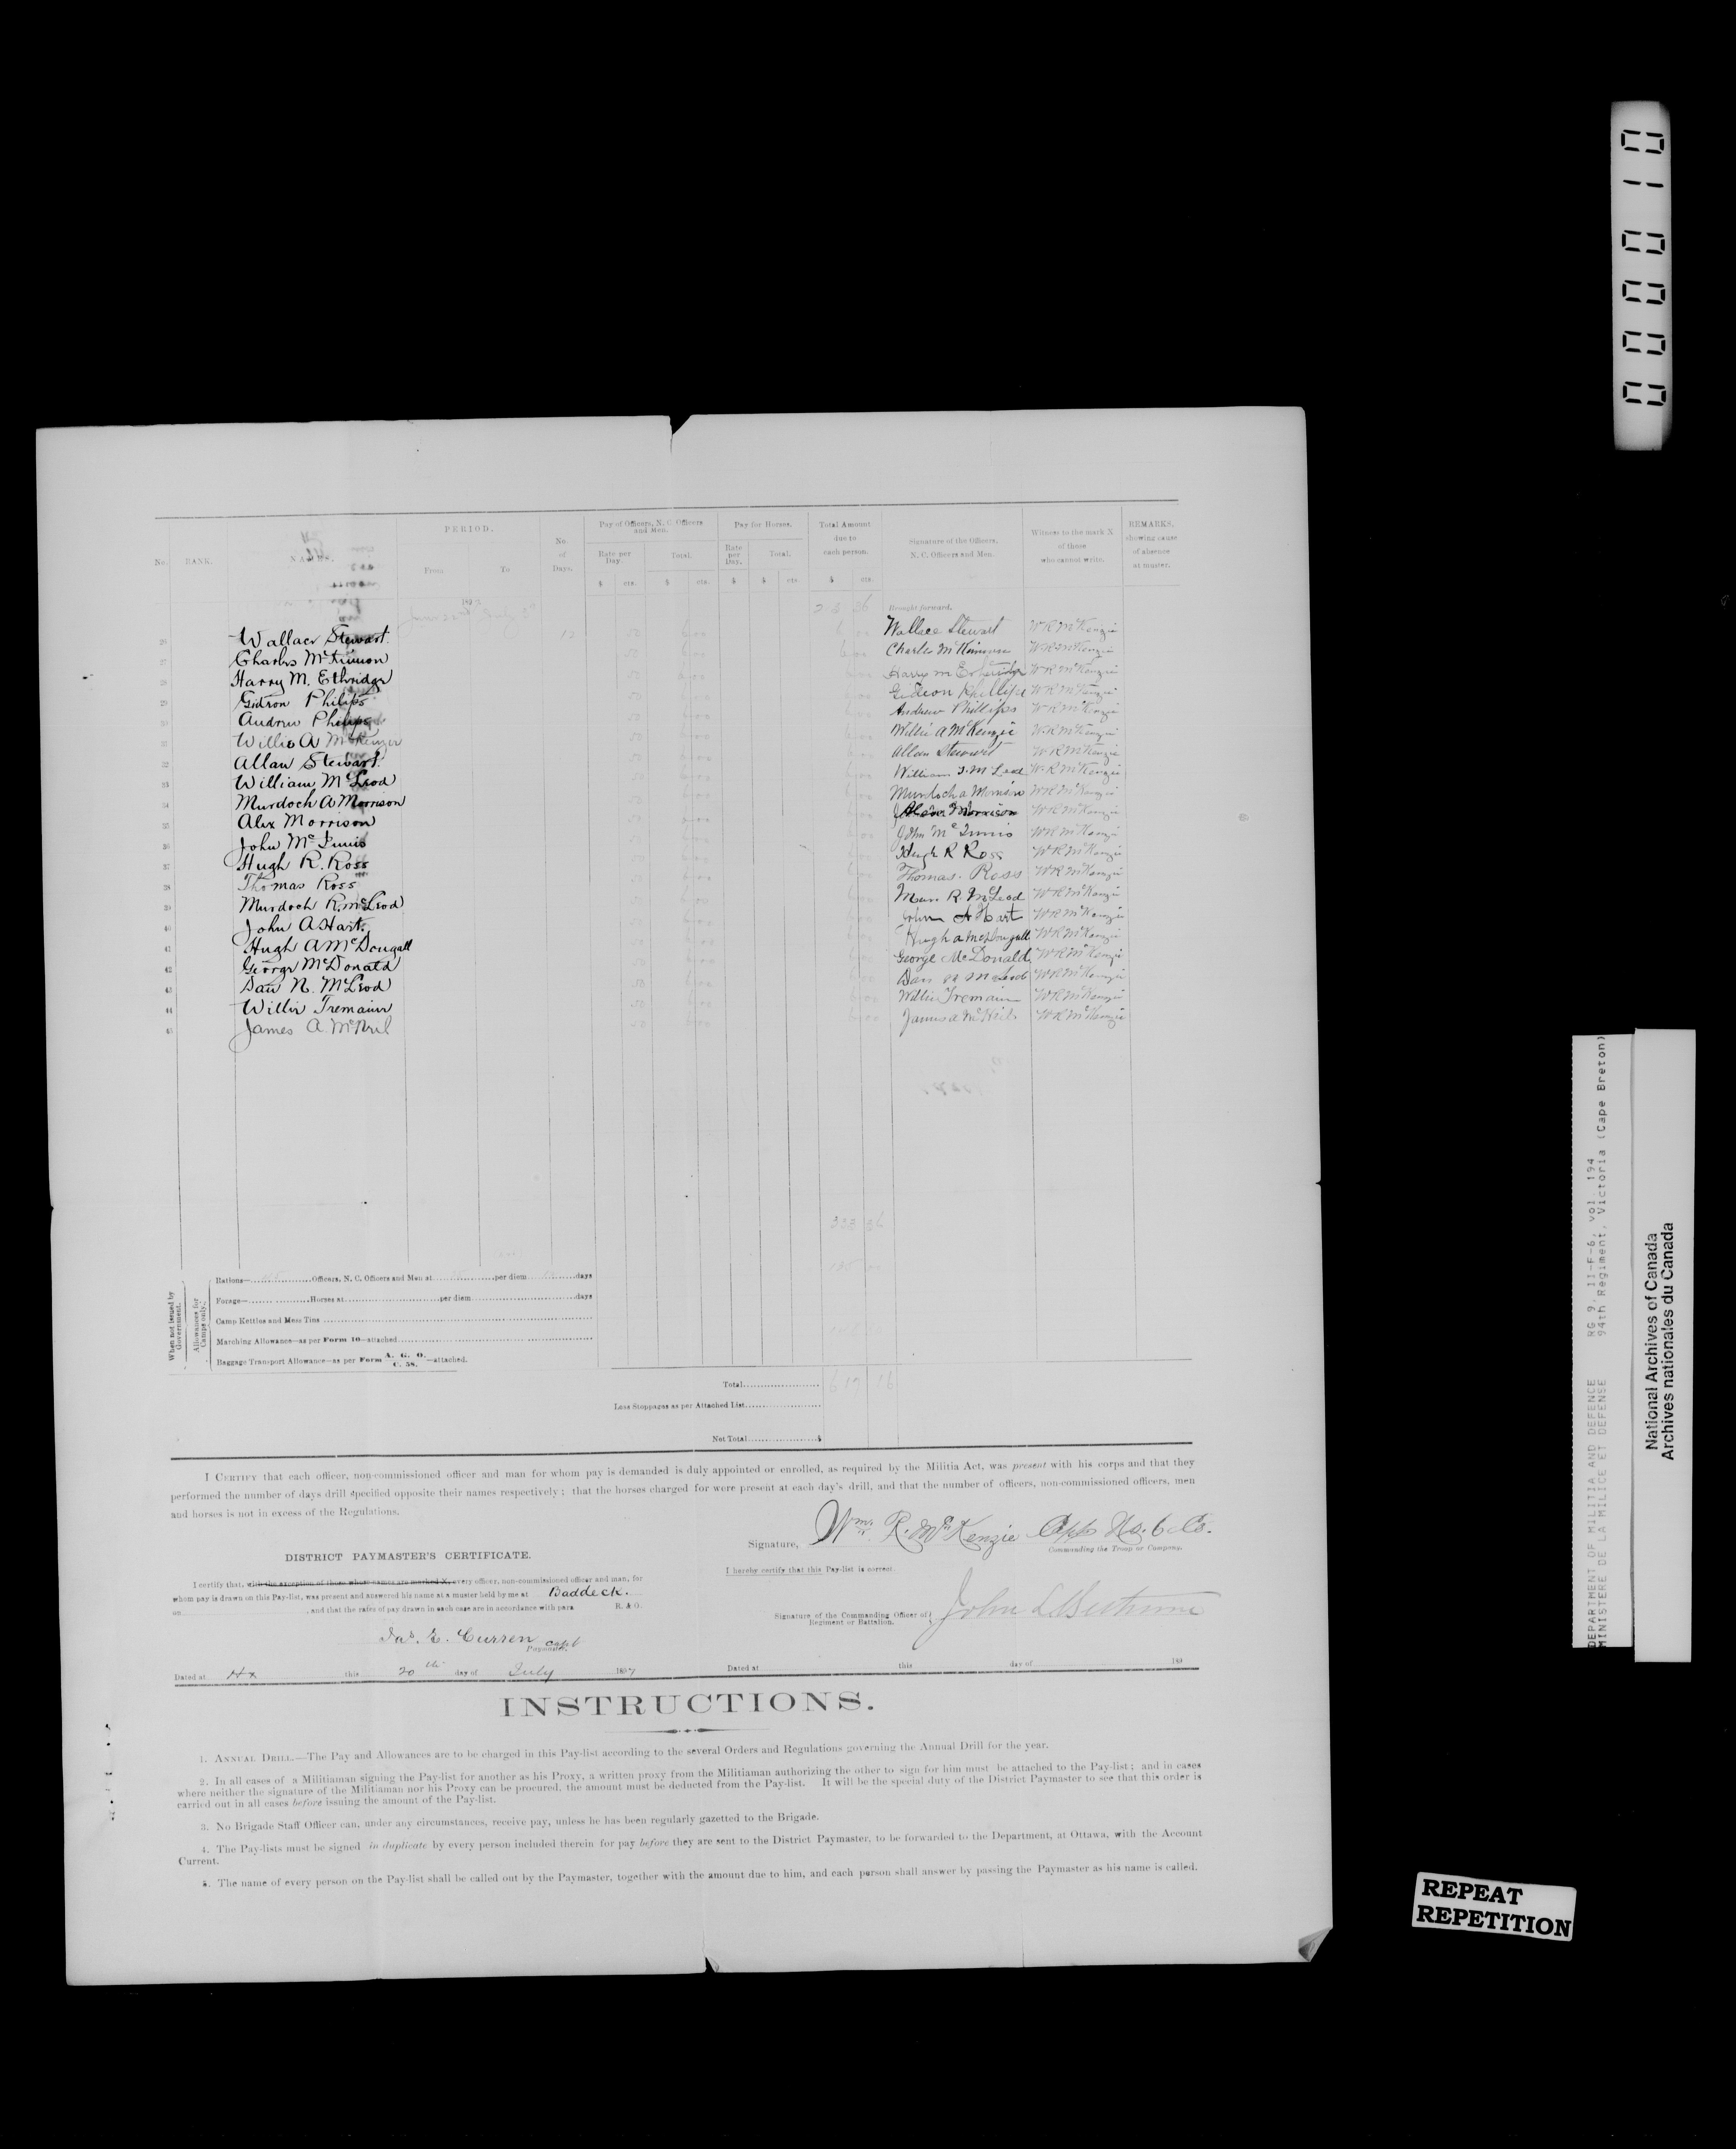 0 0 0 0 1 0
No. RANK. NAME. PERIOD. No. of Days. Pay of Officers, N. C. Officers and Men. Pay for Horses. Total Amount due to each person. Signature of the Officers, N. C. Officers and Men. Witness to the mark X of those who cannot write. REMARKS, showing cause of absence at muster.
From To Rate per Day. Total. Rate per Day. Total.
$ cts. $ cts. $ $ cts. $ cts.
Brought forward.
26 Wallace Stewart. 12 50 6 00 6 00 Wallace Stewart W R McKenzie
27 Charles McKinnon 50 6 00 6 00 Charles McKinnon W R McKenzie
28 Harry M. Ethridge 50 6 00 6 00 Harry M Ethridge W R McKenzie
29 Gideon Philips 50 6 00 6 00 Gideon Phillips W R McKenzie
30 Andrew Philips 50 6 00 6 00 Andrew Phillips W R McKenzie
31 Willie A McKenzie 50 6 00 6 00 Willie A McKenzie W R McKenzie
32 Allan Stewart. 50 6 00 6 00 Allan Stewart W R McKenzie
33 William McLeod 50 6 00 6 00 William J. McLeod W R McKenzie
34 Murdoch A Morrison 50 6 00 6 00 Murdoch A Morrison W R McKenzie
35 Alex Morrison 50 6 00 6 00 Morrison W R McKenzie
36 John McInnis 50 6 00 6 00 John McInnis W R McKenzie
37 Hugh R. Ross 50 6 00 6 00 Hugh R Ross W R McKenzie
38 Thomas Ross 50 6 00 6 00 Thomas. Ross W R McKenzie
39 Murdoch R. McLeod 50 6 00 6 00 R. McLeod W R McKenzie
40 John A Hart. 50 6 00 6 00 John A Hart W R McKenzie
41 Hugh A McDougall 50 6 00 6 00 Hugh A McDougall W R McKenzie
42 George McDonald 50 6 00 6 00 George McDonald W R McKenzie
43 Dan N. McLeod 50 6 00 6 00 Dan N McLeod W R McKenzie
44 Willie Tremain 50 6 00 6 00 Willie Tremain W R McKenzie
45 James A. McNeil 50 6 00 6 00 James A McNeil W R McKenzie
When not issued by Government.
Allowances for Camps only.
Rations— Officers, N. C. Officers and Men at per diem days
Forage— Horses at per diem days
Camp Kettles and Mess Tins
Marching Allowance—as per Form 10—attached
Baggage Transport Allowance—as per Form A. G. O. C. 58. —attached.
Total 617 16
Less Stoppages as per Attached List
Net Total $
I CERTIFY that each officer, non-commissioned officer and man for whom pay is demanded is duly appointed or enrolled, as required by the Militia Act, was present with his corps and that they
performed the number of days drill specified opposite their names respectively; that the horses charged for were present at each day's drill, and that the number of officers, non-commissioned officers, men
and horses is not in excess of the Regulations.
Signature, Wm. R. McKenzie Capt No. 6 Co.
Commanding the Troop or Company.
DISTRICT PAYMASTER'S CERTIFICATE.
I hereby certify that this Pay-list is correct.
I certify that, with the exception of those whose names are marked X, every officer, non-commissioned officer and man, for
whom pay is drawn on this Pay-list, was present and answered his name at a muster held by me at Baddeck.
on , and that the rates of pay drawn in each case are in accordance with para R. & O.
Signature of the Commanding Officer of Regiment or Battalion. John L Bethune
Jas. E. Curren Capt
Paymaster.
Dated at Hx this 20th day of July 1897
Dated at this day of 189
INSTRUCTIONS.
1. ANNUAL DRILL.—The Pay and Allowances are to be charged in this Pay-list according to the several Orders and Regulations governing the Annual Drill for the year.
2. In all cases of a Militiaman signing the Pay-list for another as his Proxy, a written proxy from the Militiaman authorizing the other to sign for him must be attached to the Pay-list; and in cases
where neither the signature of the Militiaman nor his Proxy can be procured, the amount must be deducted from the Pay-list. It will be the special duty of the District Paymaster to see that this order is
carried out in all cases before issuing the amount of the Pay-list.
3. No Brigade Staff Officer can, under any circumstances, receive pay, unless he has been regularly gazetted to the Brigade.
4. The Pay-lists must be signed in duplicate by every person included therein for pay before they are sent to the District Paymaster, to be forwarded to the Department, at Ottawa, with the Account
Current.
5. The name of every person on the Pay-list shall be called out by the Paymaster, together with the amount due to him, and each person shall answer by passing the Paymaster as his name is called.
DEPARTMENT OF MILITIA AND DEFENCE RG 9, II-F-6, vol. 194
MINISTERE DE LA MILICE ET DEFENSE 94th Regiment, Victoria (Cape Breton)
National Archives of Canada
Archives nationales du Canada
REPEAT
REPETITION